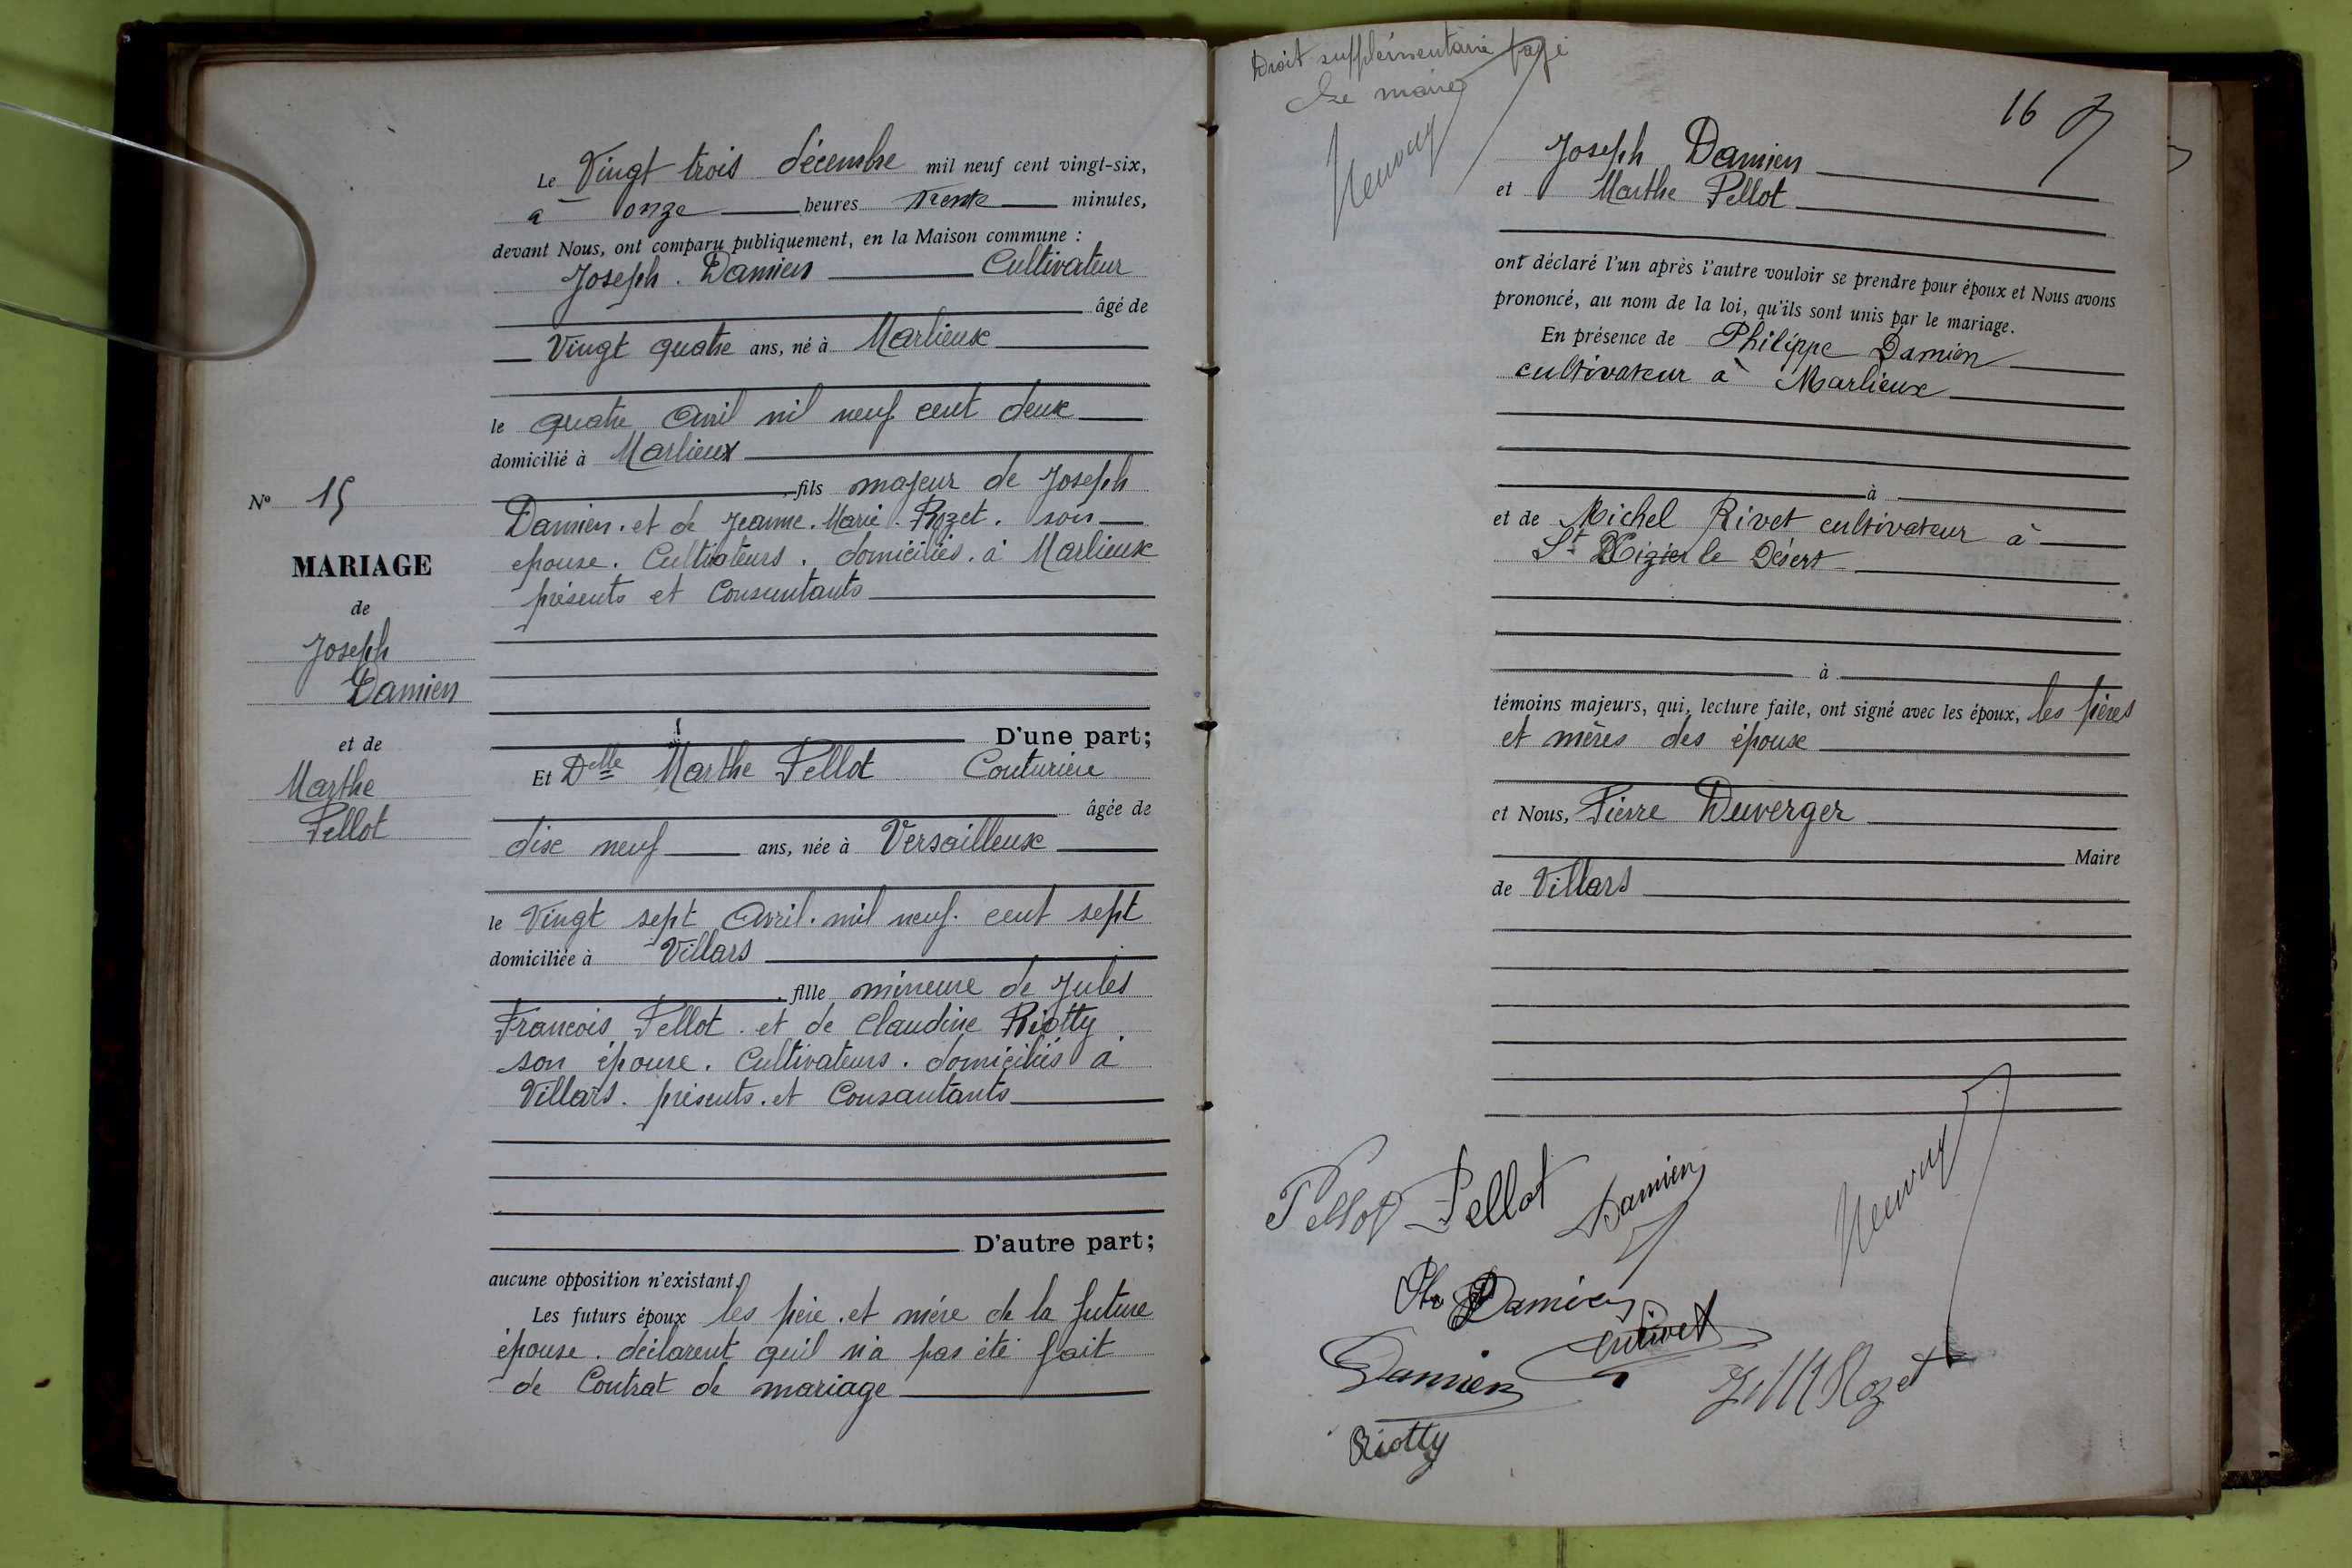 Le Vingt trois décembre mil neuf cent vingt-six,
à onze heures trente minutes,
devant Nous, ont comparu publiquement, en la Maison commune :
Joseph. Damien Cultivateur
âgé de
Vingt quatre ans, né à Marlieux
le quatre Avril mil neuf cent deux
domicilié à Marlieux
fils majeur de Joseph
Damien. et de Jeanne. Marie. Rozet. son
epouse. Cultivateurs. domiciliés. à Marlieux
présents et Consentants
D'une part;
Et Delle Marthe Pellot Couturière
âgée de
dix neuf ans, née à Versailleux
le Vingt sept Avril. mil neuf. cent sept
domiciliée à Villars
fille mineure de Jules
Francois Pellot. et de Claudine Riotty
son épouse. Cultivateurs. domiciliés à
Villars. présents. et Consantants
D'autre part;
aucune opposition n'existant.
Les futurs époux les père. et mére de la future
épouse. déclarent qu'il n'a pas été fait
de Contrat de mariage
No 15
MARIAGE
de
Joseph
Damien
et de
Marthe
Pellot
Droit supplémentaire payé
Le maire
16
Joseph Damien
et Marthe Pellot
ont déclaré l'un après l'autre vouloir se prendre pour époux et Nous avons
prononcé, au nom de la loi, qu'ils sont unis par le mariage.
En présence de Philippe Damien
cultivateur à Marlieux
à
et de Michel Rivet cultivateur à
St Nizier le Désert
à
témoins majeurs, qui, lecture faite, ont signé avec les époux, les pères
et mères des époux
et Nous, Pierre Duverger
Maire
de Villars
Pellot Pellot Damien
Damien
Rivet
Damien
Rozet
Riotty